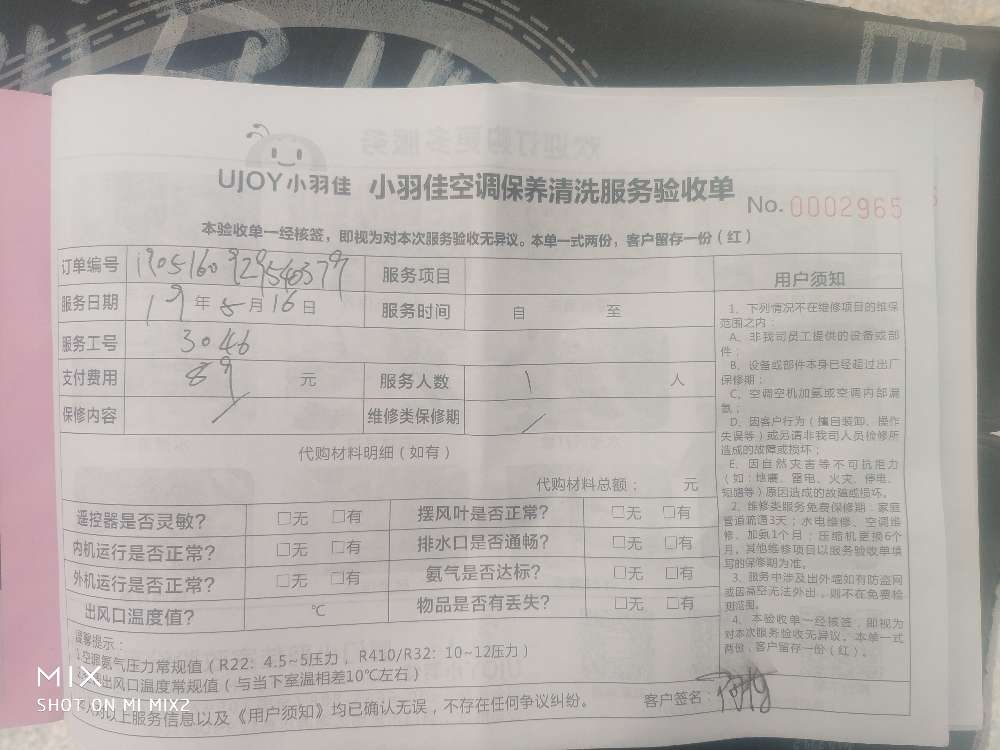 UJOY小羽佳 小羽佳空调保养清洗服务验收单 No. 0002965
本验收单一经核签，即视为对本次服务验收无异议。本单一式两份，客户留存一份（红）
订单编号 服务项目
服务日期 19 年 5 月 16 日 服务时间 自 至
服务工号 3046
支付费用 89 元 服务人数 1 人
保修内容 / 维修类保修期 /
代购材料明细（如有）
代购材料总额： 元
遥控器是否灵敏？ □无 □有 摆风叶是否正常？ □无 □有
内机运行是否正常？ □无 □有 排水口是否通畅？ □无 □有
外机运行是否正常？ □无 □有 氨气是否达标？ □无 □有
出风口温度值？ ℃ 物品是否有丢失？ □无 □有
温馨提示：
1.空调氨气压力常规值（R22：4.5~5压力，R410/R32：10~12压力）
出风口温度常规值（与当下室温相差10℃左右）
对以上服务信息以及《用户须知》均已确认无误，不存在任何争议纠纷。 客户签名：
用户须知
1、下列情况不在维修项目的维保
范围之内：
A、非我司员工提供的设备或部
件；
B、设备或部件本身已经超过出厂
保修期；
C、空调空机加氨或空调内部漏
氨；
D、因客户行为（擅自装卸、操作
失误等）或另请非我司人员检修所
造成的故障或损坏；
E、因自然灾害等不可抗拒力
（如：地震、雷电、火灾、停电、
短路等）原因造成的故障或损坏。
2、维修类服务免费保修期：家庭
管道疏通3天；水电维修、空调维
修、加氨1个月；压缩机更换6个
月，其他维修项目以服务验收单填
写的保修期为准。
3、服务中涉及出外墙如有防盗网
或因高空无法外出，则不在免费检
测范围。
4、本验收单一经核签，即视为
对本次服务验收无异议。本单一式
两份，客户留存一份（红）。
MIX
SHOT ON MI MIX2